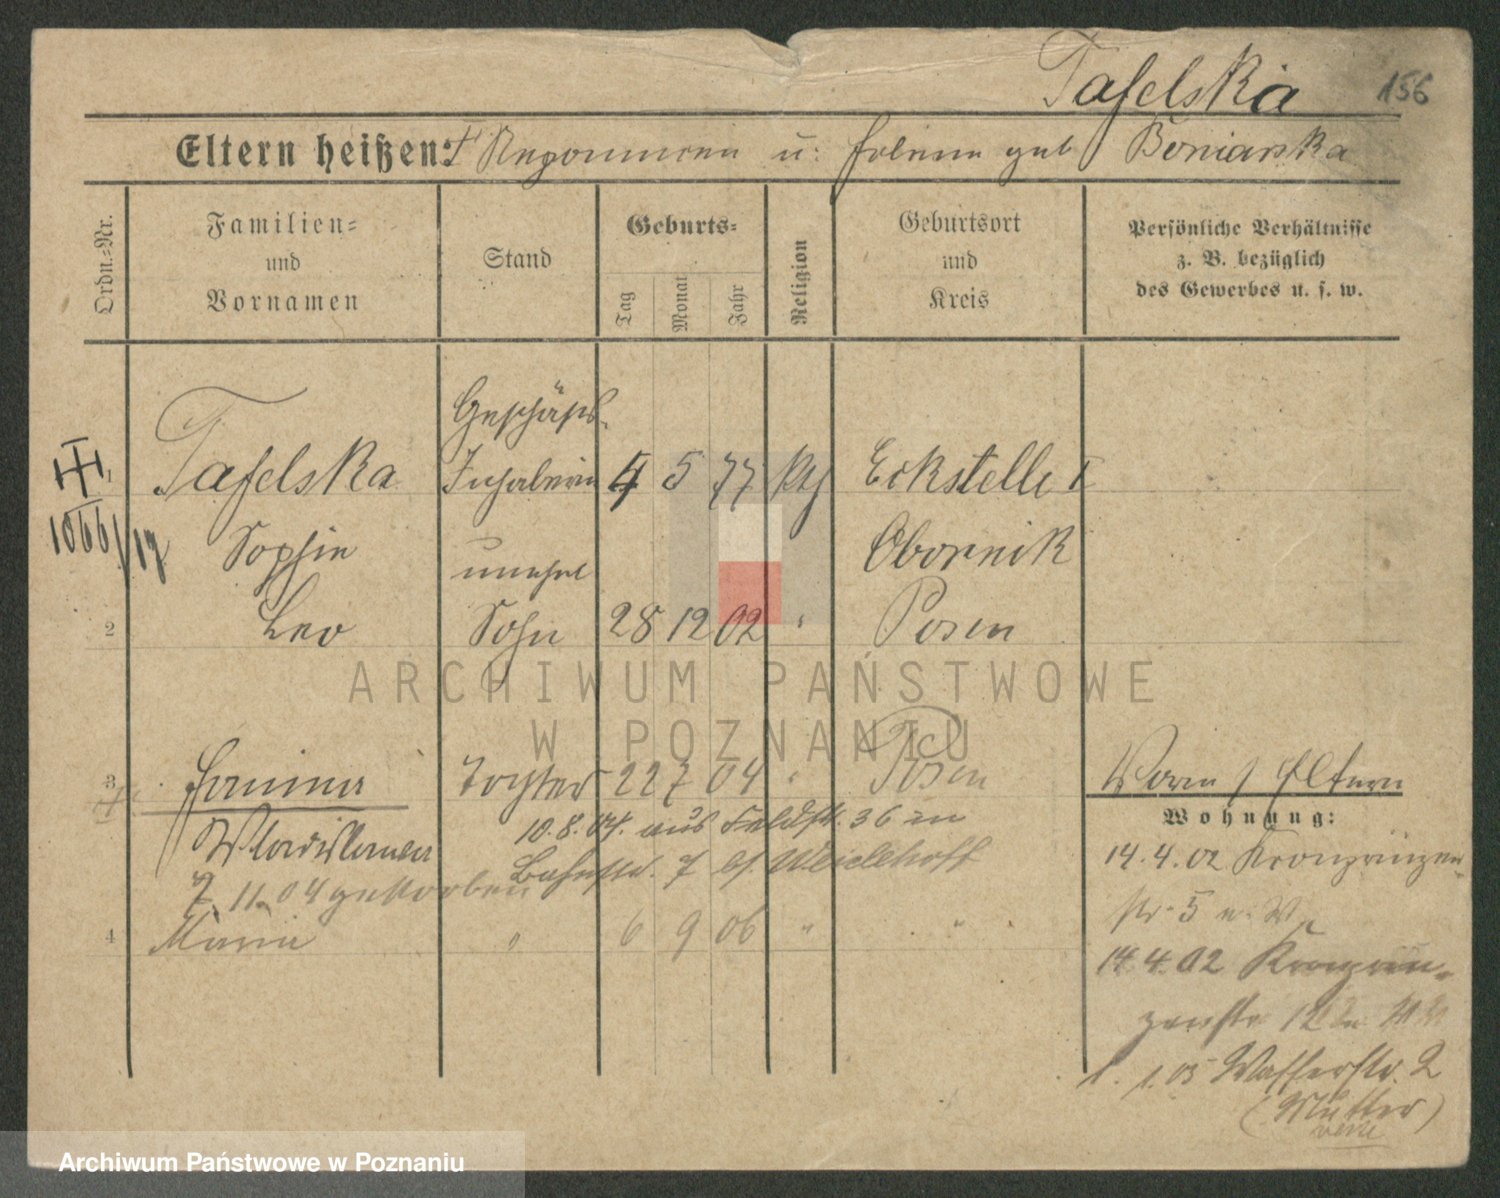 Tafelska
156
Eltern heißen: u: geb Boniarska
Ordn.-Nr.
Familien- und Vornamen
Stand
Geburts-
Tag
Monat
Jahr
Religion
Geburtsort und Kreis
Persönliche Verhältnisse z. B. bezüglich des Gewerbes u. s. w.
1 Tafelska Geschäfts-
Inhaberin 4 5 77 kth Eckstelle
1066/17
Sophie unehel Obornik
2 Leo Sohn 28 12 02 " Posen
3 Janina Tochter 22 7 04 " Posen
Worn / Eltern
Wohnung:
Wladislawa 10.8.04. aus Feldstr. 36 in
14.4.02 Kronprinzen-
7. 11. 04 gestorben Bahnstr. 7
str. 5
4 Maria " 6 9 06 " "
14.4.02 Kronprin-
zenstr 12
1. 1. 05 Wasserstr. 2
(Mutter)
ARCHIWUM PAŃSTWOWE
W POZNANIU
Archiwum Państwowe w Poznaniu